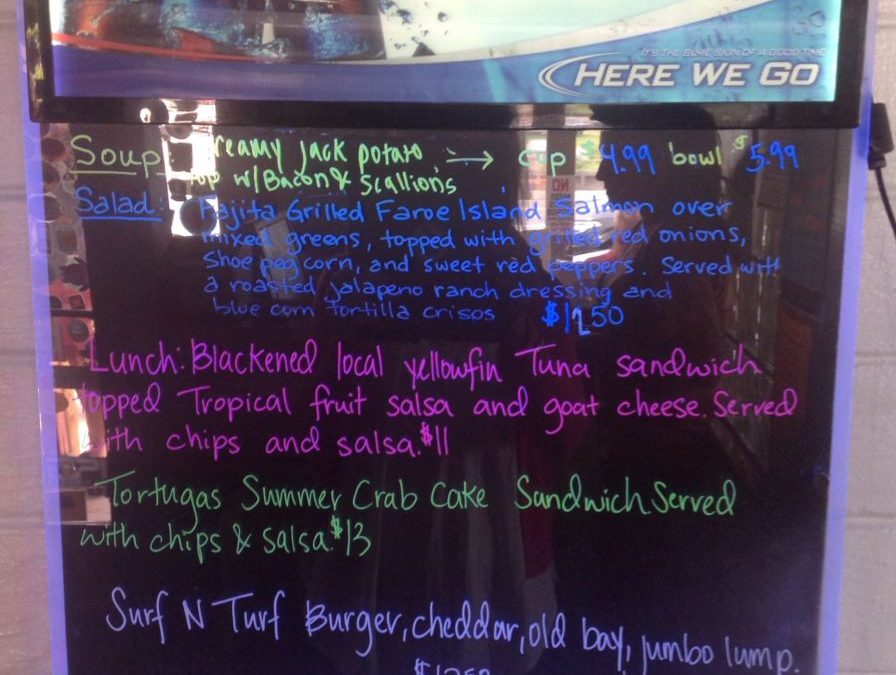 IT'S THE SURE SIGN OF A GOOD TIME
HERE WE GO
Soup: Creamy Jack potato → cup $4.99 bowl $5.99
top w/Bacon & Scallions
Salad: Fajita Grilled Faroe Island Salmon over
mixed greens, topped with grilled red onions,
Shoe peg corn, and sweet red peppers. Served with
a roasted jalapeno ranch dressing and
blue corn tortilla crisps $12.50
Lunch: Blackened local yellowfin Tuna sandwich
topped Tropical fruit salsa and goat cheese. Served
with chips and salsa. $11
Tortugas Summer Crab Cake Sandwich. Served
with chips & salsa. $13
Surf N Turf Burger, cheddar, old bay, jumbo lump.